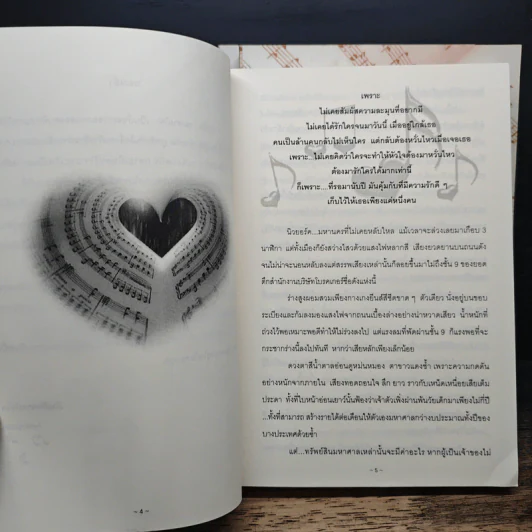 เพราะ
ไม่เคยสัมผัสความละมุนที่อยากมี
ไม่เคยได้รักใครจนมาวันนี้ เมื่ออยู่ใกล้เธอ
คนเป็นล้านคนกลับไม่เห็นใคร แต่กลับต้องหวั่นไหวเมื่อเจอเธอ
เพราะ...ไม่เคยคิดว่าใครจะทำให้หัวใจต้องมาหวั่นไหว
ต้องมารักใครได้มากเท่านี้
ก็เพราะ...ที่รอมานับปี มันคุ้มกับที่มีความรักดี ๆ
เก็บไว้ให้เธอเพียงแค่หนึ่งคน
นิวยอร์ค...มหานครที่ไม่เคยหลับใหล แม้เวลาจะล่วงเลยมาเกือบ 3
นาฬิกา แต่ทั้งเมืองก็ยังสว่างไสวด้วยแสงไฟหลากสี เสียงยวดยานบนถนนดัง
จนไม่น่าจะนอนหลับลงแต่สรรพเสียงเหล่านั้นก็ลอยขึ้นมาไม่ถึงชั้น 9 ของยอด
ตึกสำนักงานบริษัทโบรคเกอร์ชื่อดังแห่งนี้
ร่างสูงผอมสวมเพียงกางเกงยีนส์สีซีดขาด ๆ ตัวเดียว นั่งอยู่บนขอบ
ระเบียงและก้มลงมองแสงไฟจากถนนเบื้องล่างอย่างน่าหวาดเสียว น้ำหนักที่
ถ่วงไว้พอเหมาะพอดีทำให้ไม่ร่วงลงไป แต่แรงลมที่พัดผ่านชั้น 9 ก็แรงพอที่จะ
กระชากร่างนี้ลงไปทันที หากว่าเสียหลักเพียงเล็กน้อย
ดวงตาสีน้ำตาลอ่อนดูหม่นหมอง ตาขาวแดงช้ำ เพราะความกดดัน
อย่างหนักจากภายใน เสียงทอดถอนใจ ลึก ยาว ราวกับเหน็ดเหนื่อยเสียเต็ม
ประดา ทั้งที่ใบหน้าอ่อนเยาว์นั้นฟ้องว่าเจ้าตัวเพิ่งผ่านพ้นวัยเด็กมาเพียงไม่กี่ปี
...ทั้งที่สามารถ สร้างรายได้ต่อเดือนให้ตัวเองมหาศาลกว่างบประมาณทั้งปีของ
บางประเทศด้วยซ้ำ
แต่...ทรัพย์สินมหาศาลเหล่านั้นจะมีค่าอะไร หากผู้เป็นเจ้าของไม่
~ 4 ~
~ 5 ~